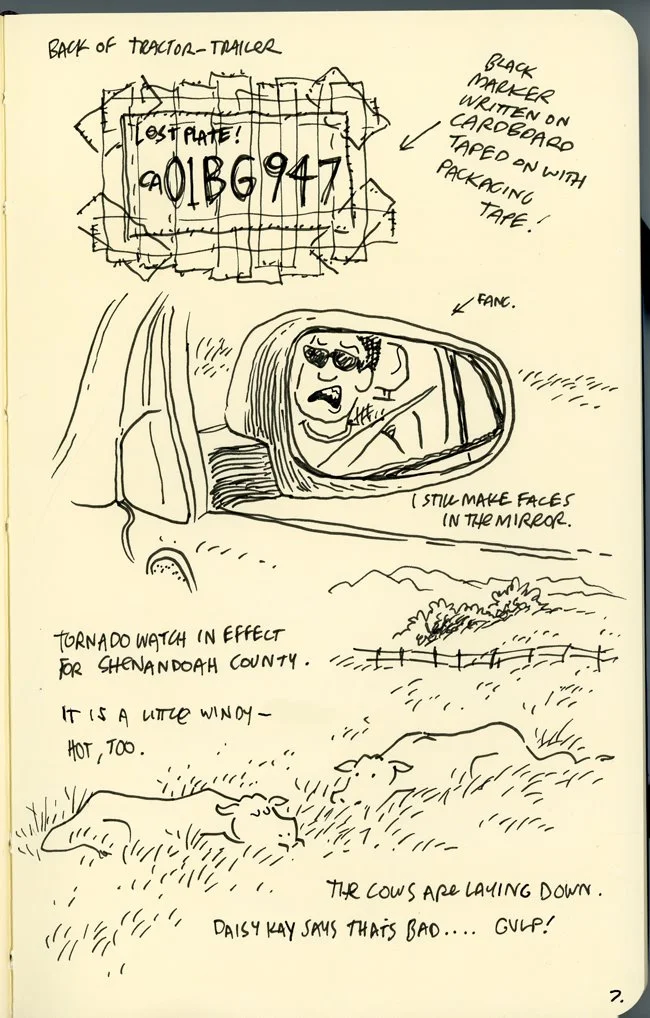 BACK OF TRACTOR-TRAILER
LOST PLATE!
CA 01BG947
BLACK
MARKER
WRITTEN ON
CARDBOARD
TAPED ON WITH
PACKAGING
TAPE!
FANG.
I STILL MAKE FACES
IN THE MIRROR.
TORNADO WATCH IN EFFECT
FOR SHENANDOAH COUNTY.
IT IS A LITTLE WINDY—
HOT, TOO.
THE COWS ARE LAYING DOWN.
DAISY KAY SAYS THAT'S BAD.... GULP!
7.